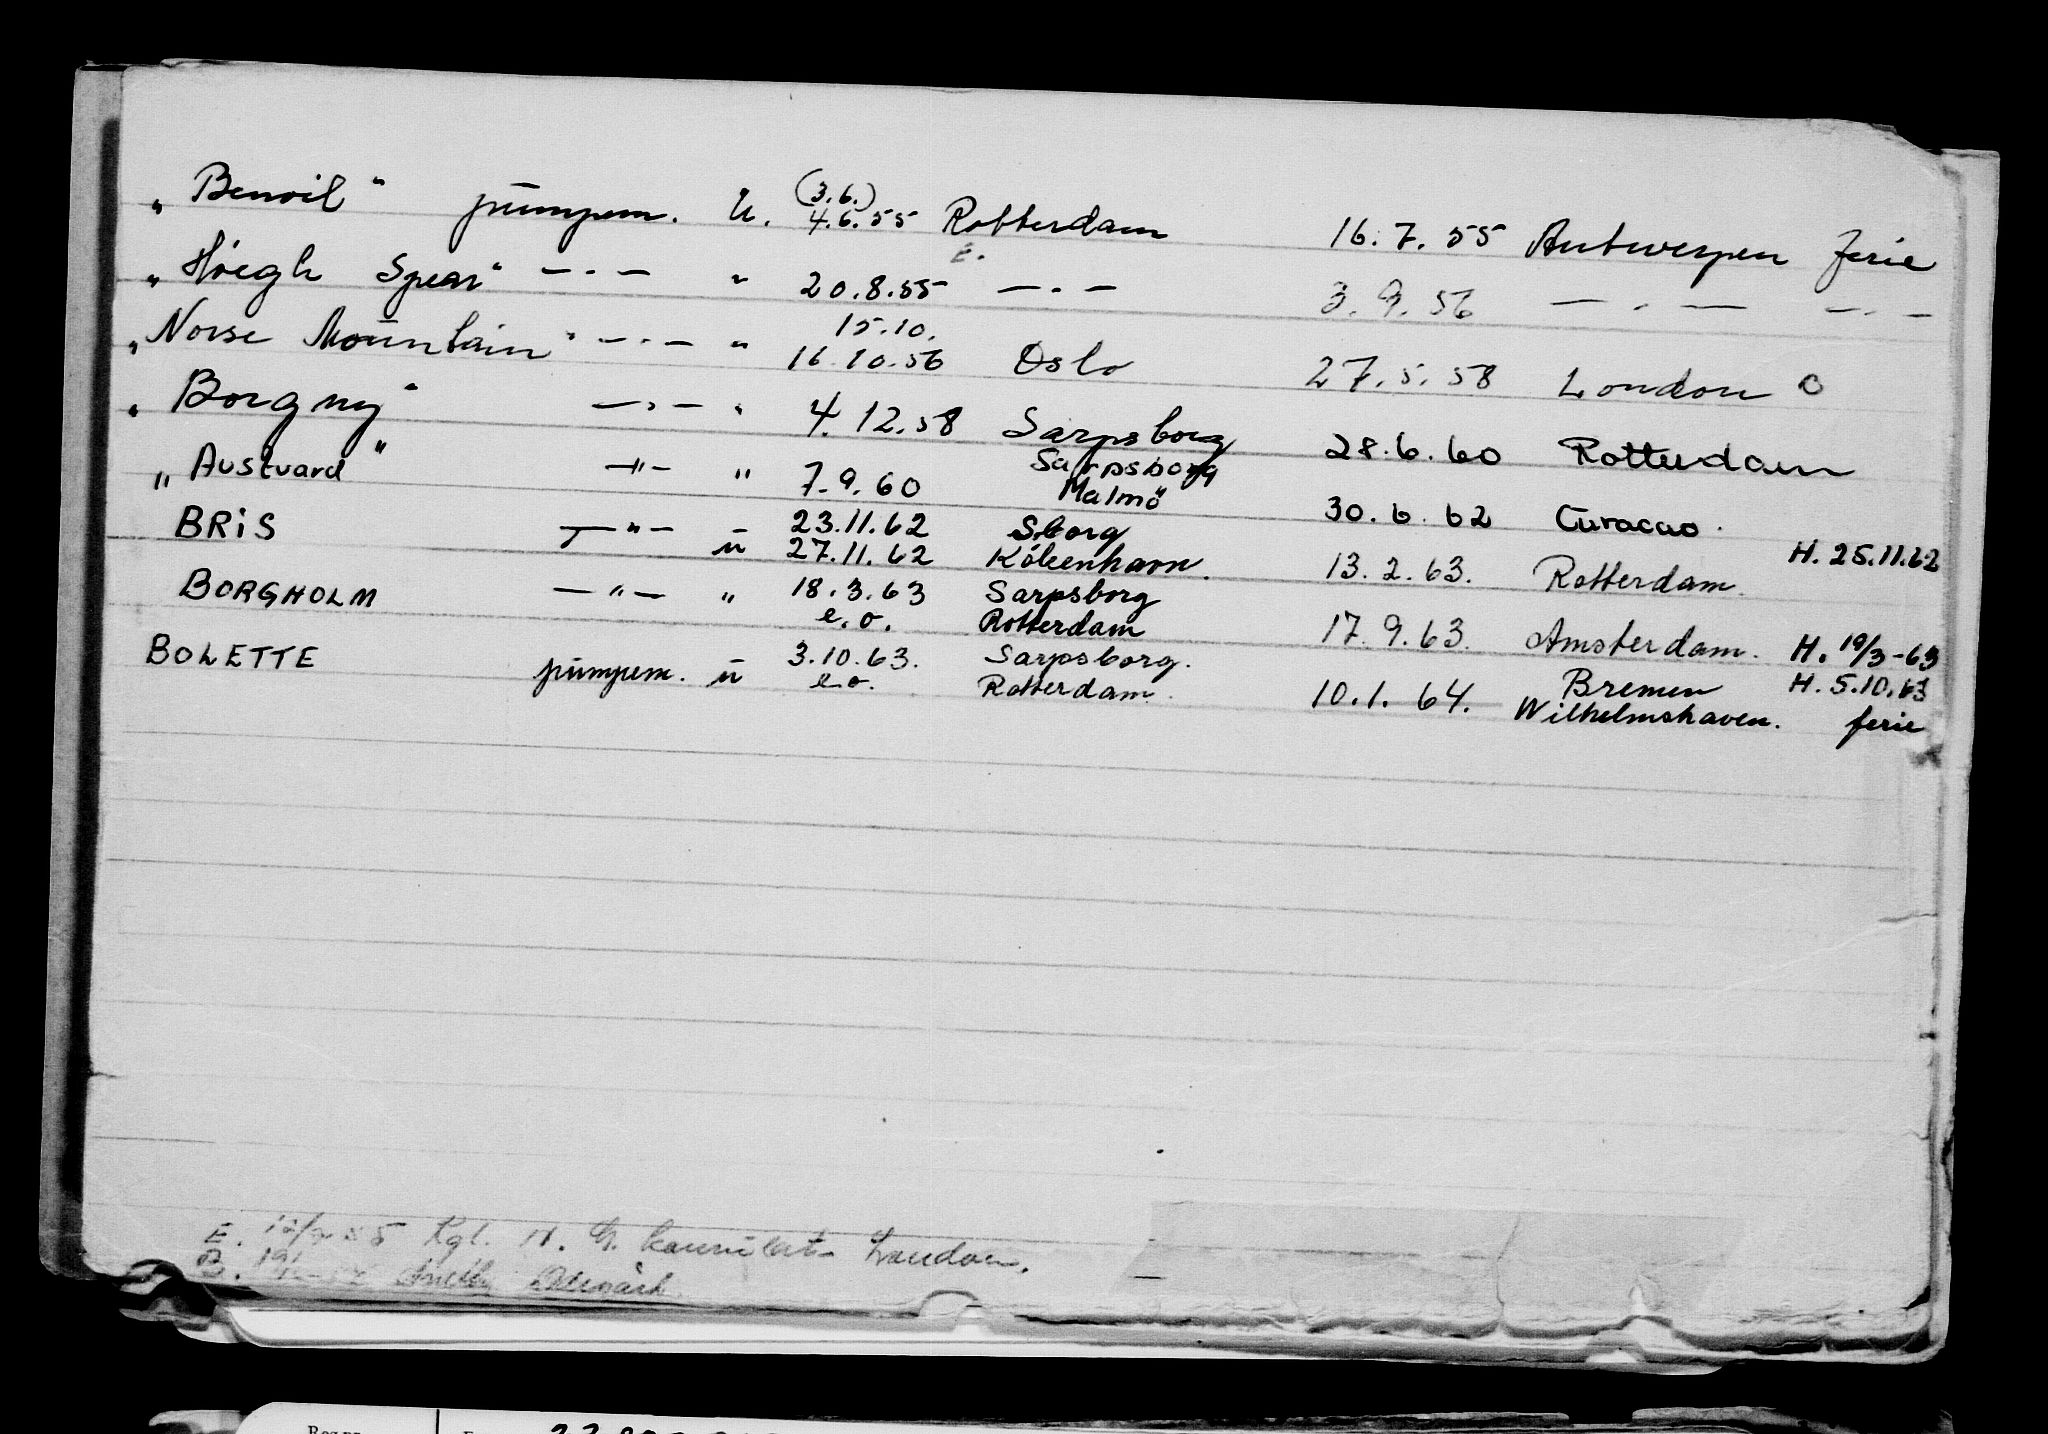 „ Benoil “ pumpem. U. (3.6.) 4.6.55 Rotterdam 16.7.55 Antwerpen ferie
„ Höegh Spear “ — . — " 20.8.55 — . — E. 3.9.56 — . — — . —
„ Norse Mountain “ — . — " 15.10. 16.10.56 Oslo 27.5.58 London O
„ Borgny “ — . — " 4.12.58 Sarpsborg 28.6.60 Rotterdam
„ Austvard “ — " — " 7.9.60 Sarpsborg Malmö 30.6.62 Curacao.
BRIS — " — – 23.11.62 Sborg
u 27.11.62 Köbenhavn. 13.2.63. Rotterdam. H. 25.11.62
BORGHOLM — " — " 18.3.63 Sarpsborg
e.o. Rotterdam 17.9.63. Amsterdam. H. 19/3-63
BOLETTE pumpem. u 3.10.63. Sarpsborg. Bremen H. 5.10.63
e.o. Rotterdam. 10.1.64. Wilhelmshaven. ferie
E. Kgl. N. G. konsulat London.
B.